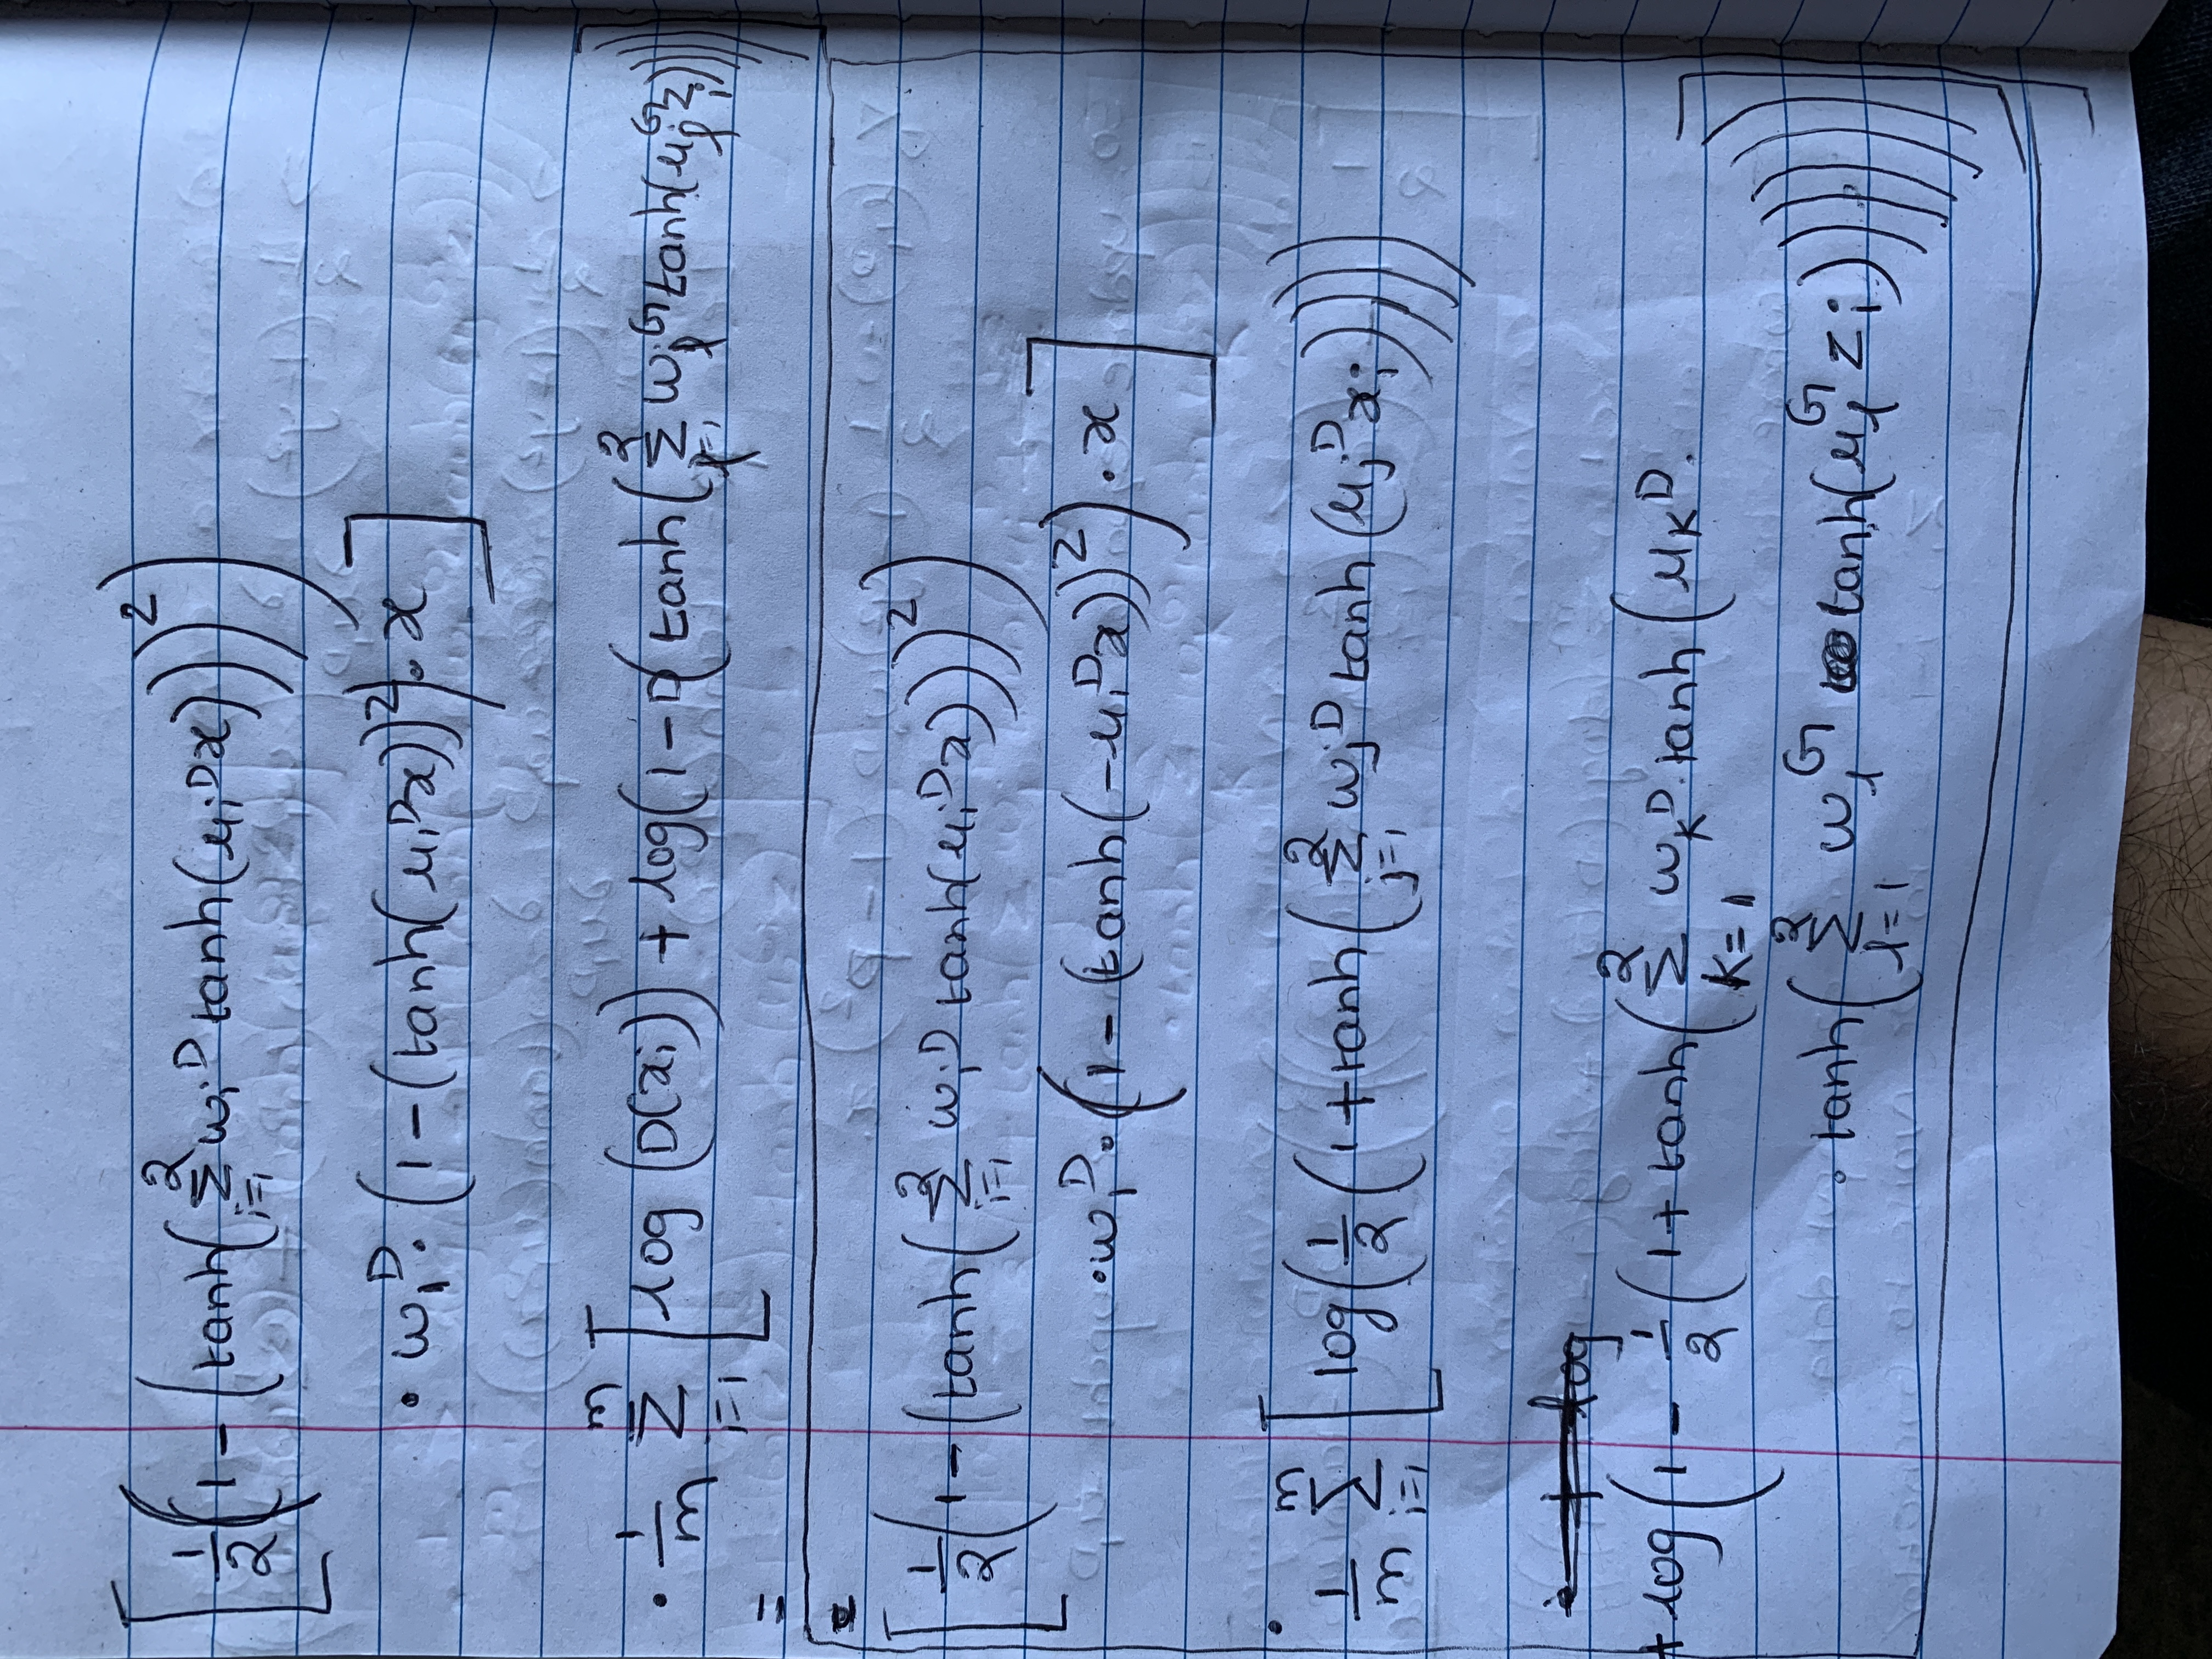 [ 1/2 (1 - (tanh(Σ_{i=1}^{2} w_i^D tanh(u_i^D x)))^2)
· w_1^D · (1 - (tanh(u_1^D x))^2) · x ]
· 1/m Σ_{i=1}^{m} [ log (D(x_i)) + log(1 - D(tanh(Σ_{l=1}^{2} w_l^G tanh(u_l^G z_i))))]
=
=
[ 1/2 (1 - (tanh(Σ_{i=1}^{2} w_i^D tanh(u_i^D x)))^2)
· w_1^D · (1 - (tanh(-u_1^D x))^2) · x ]
· 1/m Σ_{i=1}^{m} [ log(1/2 (1 + tanh(Σ_{j=1}^{2} w_j^D tanh(u_j^D x_i))))
+ log
+ log(1 - 1/2 (1 + tanh(Σ_{k=1}^{2} w_k^D · tanh(u_k^D ·
· tanh(Σ_{l=1}^{2} w_l^G tanh(u_l^G z_i)))))) ]